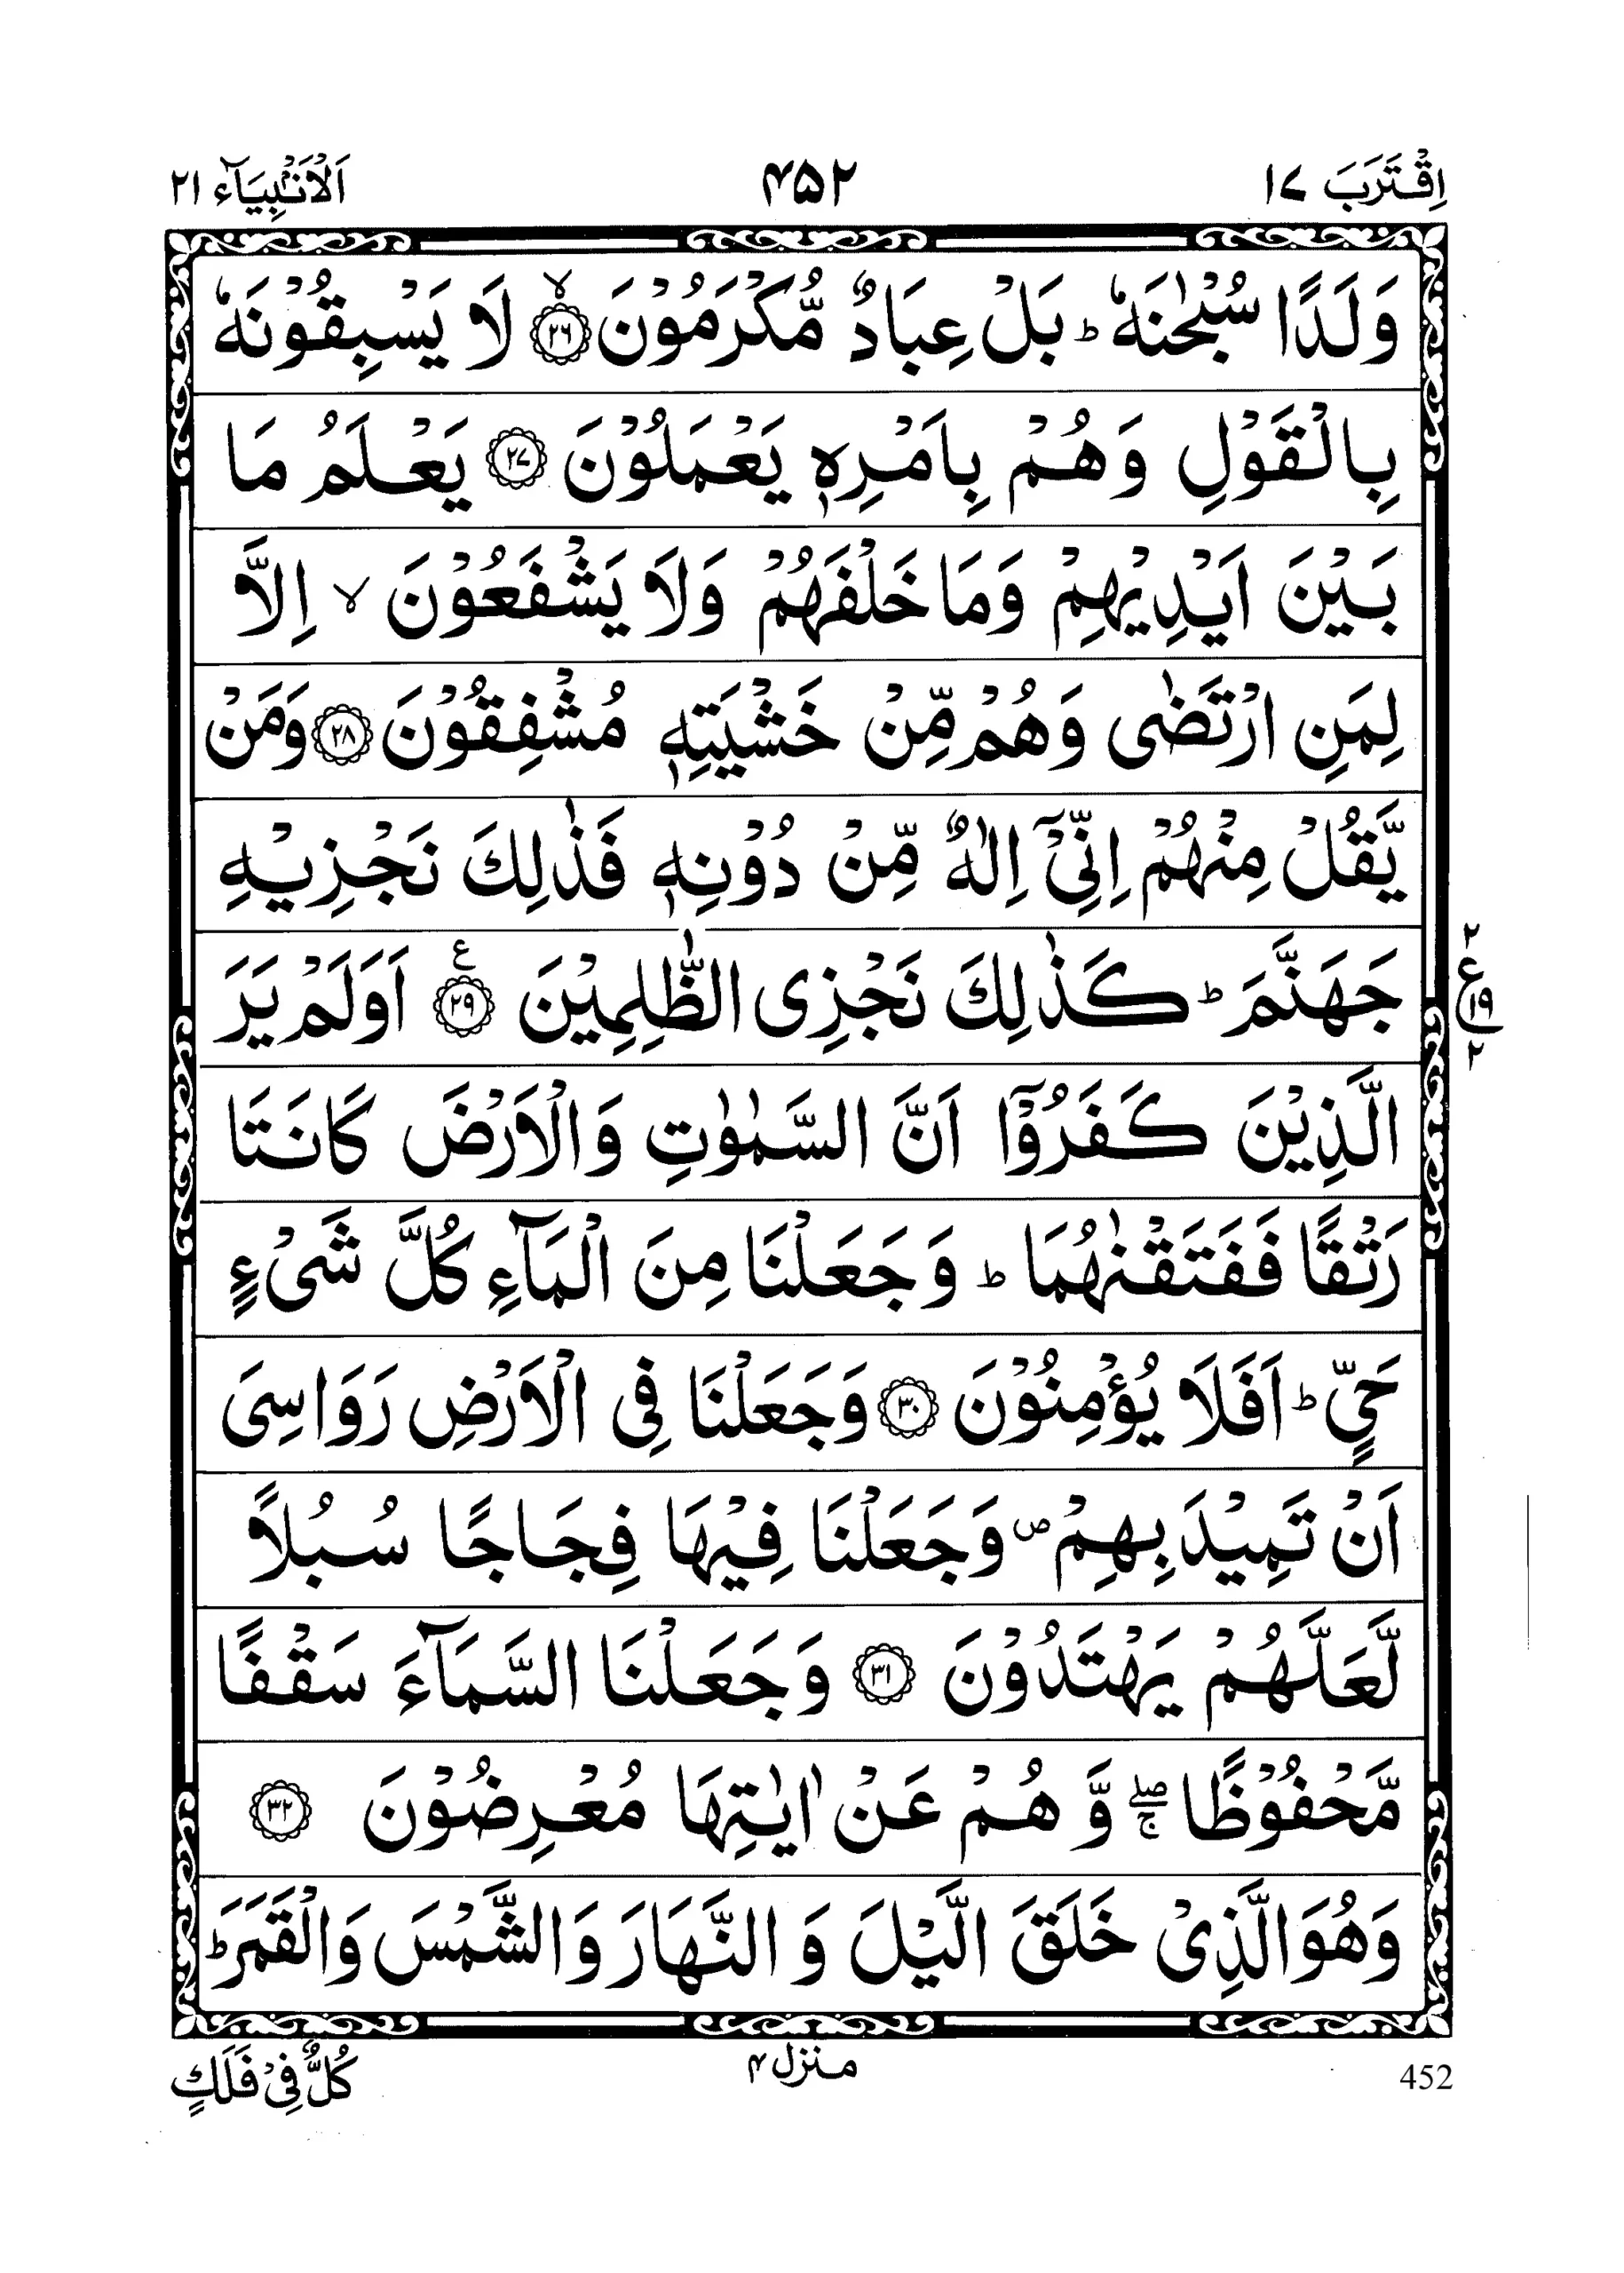 اِقْتَرَبَ ١٧ ۴۵۲ اَلْاَنْۢبِيَآء ٢١
وَلَدًا سُبْحٰنَهٗ ؕ بَلْ عِبَادٌ مُّكْرَمُوْنَ ۙ﴿۲۶﴾ لَا يَسْبِقُوْنَهٗ
بِالْقَوْلِ وَهُمْ بِاَمْرِهٖ يَعْمَلُوْنَ ﴿۲۷﴾ يَعْلَمُ مَا
بَيْنَ اَيْدِيْهِمْ وَمَا خَلْفَهُمْ وَلَا يَشْفَعُوْنَ ۙ اِلَّا
لِمَنِ ارْتَضٰى وَهُمْ مِّنْ خَشْيَتِهٖ مُشْفِقُوْنَ ﴿۲۸﴾ وَمَنْ
يَّقُلْ مِنْهُمْ اِنِّىْۤ اِلٰهٌ مِّنْ دُوْنِهٖ فَذٰلِكَ نَجْزِيْهِ
جَهَنَّمَ ؕ كَذٰلِكَ نَجْزِى الظّٰلِمِيْنَ ﴿۲۹﴾ ع اَوَلَمْ يَرَ
٢ ع ١٩ ٢
الَّذِيْنَ كَفَرُوْۤا اَنَّ السَّمٰوٰتِ وَالْاَرْضَ كَانَتَا
رَتْقًا فَفَتَقْنٰهُمَا ؕ وَجَعَلْنَا مِنَ الْمَآءِ كُلَّ شَىْءٍ
حَىٍّ ؕ اَفَلَا يُؤْمِنُوْنَ ﴿۳۰﴾ وَجَعَلْنَا فِى الْاَرْضِ رَوَاسِىَ
اَنْ تَمِيْدَ بِهِمْ ص وَجَعَلْنَا فِيْهَا فِجَاجًا سُبُلًا
لَّعَلَّهُمْ يَهْتَدُوْنَ ﴿۳۱﴾ وَجَعَلْنَا السَّمَآءَ سَقْفًا
مَّحْفُوْظًا ۖۚ وَّهُمْ عَنْ اٰيٰتِهَا مُعْرِضُوْنَ ﴿۳۲﴾
وَهُوَ الَّذِىْ خَلَقَ الَّيْلَ وَالنَّهَارَ وَالشَّمْسَ وَالْقَمَرَ ؕ
452 منزل ۴ كُلٌّ فِىْ فَلَكٍ